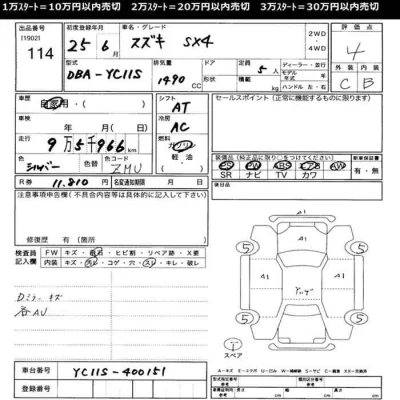 1万スタート=10万円以内売切 2万スタート=20万円以内売切 3万スタート=30万円以内売切
出品番号 初度登録年月 車名・グレード 評価点
[1902]
114 25年6月 スズキ SX4 2WD・4WD 4
型式 排気量 ドア 定員 ディーラー・並行 外装 内装
DBA-YC11S 1490CC 形状 5人 モデル年式 年 C B
積載量 kg ハンドル 左・右
車歴 自家用・ シフト AT セールスポイント(正常に機能するものに限る)
冷房 AC
走行 9万5千966km 燃料 ガソリン・軽油
色 シルバー 色替 色コード ZMU
装備品(純正品に限り○を記入) 新車保証書
SR ナビ TV カワ 有・無
R券 11.810円 名変通知期限 月 日 後日品
注意事項申告欄(不具合内容等は具体的に記入して下さい)
修復歴 有(箇所
検査員記入欄 FW キズ・飛石・ヒビ割・リペア跡・X要
内装 キズ・汚レ・コゲ・穴・スレ・キレ・破レ
Dミラーキズ
各AU
5 5
A1
A1 A1
5 5
スペア
車台番号 YC11S-400151
登録番号